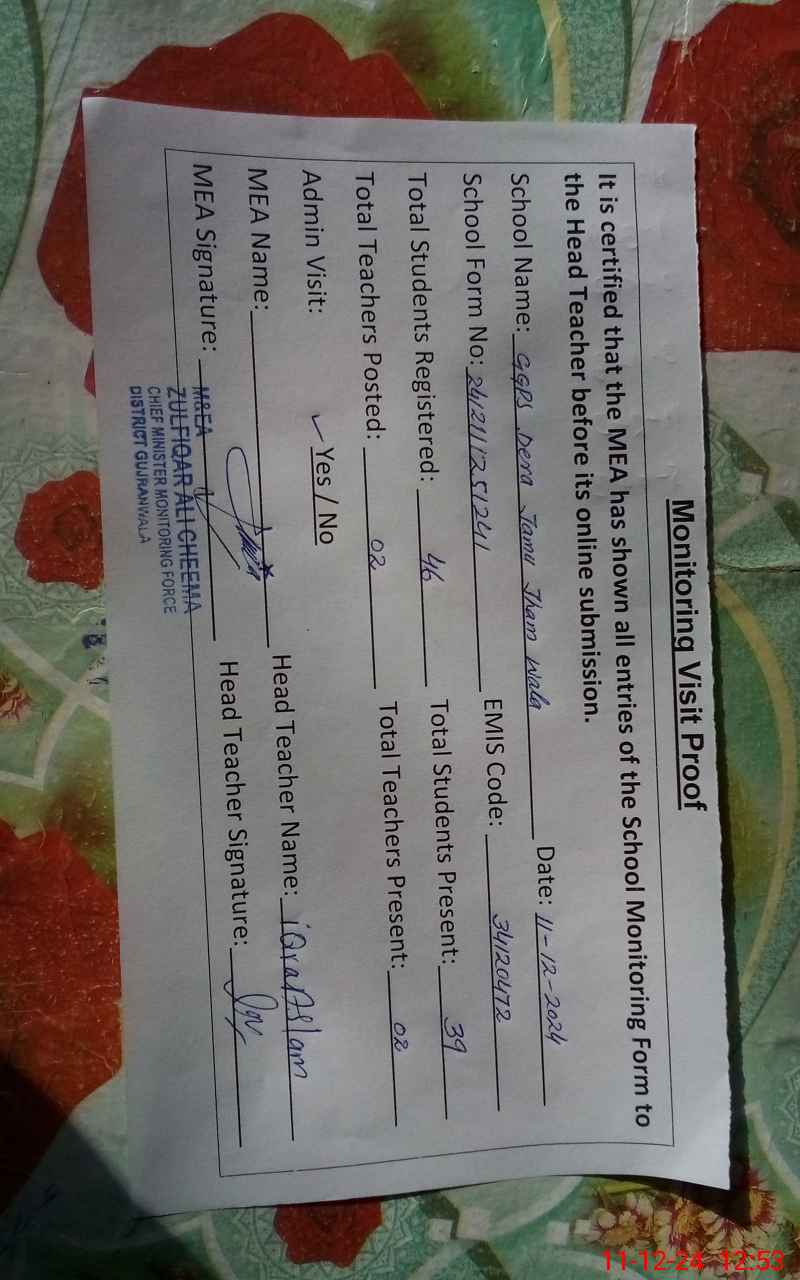 Monitoring Visit Proof
It is certified that the MEA has shown all entries of the School Monitoring Form to
the Head Teacher before its online submission.
School Name: GGPS Dera Jamu Tham Wala Date: 11-12-2024
School Form No: 2412111251241 EMIS Code: 34120472
Total Students Registered: 46 Total Students Present: 39
Total Teachers Posted: 02 Total Teachers Present: 02
Admin Visit: ✓ Yes / No
MEA Name: Head Teacher Name: iQra Aslam
MEA Signature: Head Teacher Signature:
M&EA
ZULFIQAR ALI CHEEMA
CHIEF MINISTER MONITORING FORCE
DISTRICT GUJRANWALA
11-12-24 12:53